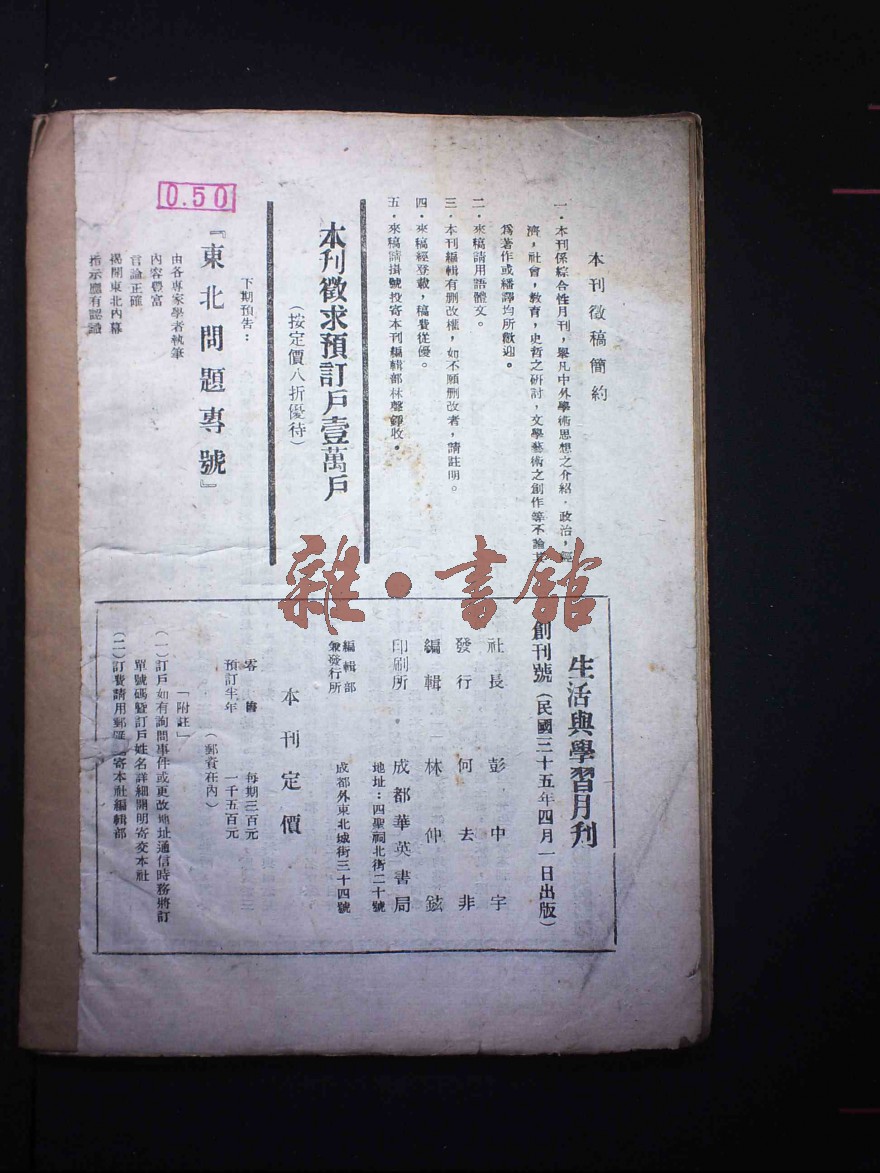 本刊徵稿簡約
一．本刊係綜合性月刊，舉凡中外學術思想之介紹．政治，經
濟，社會，教育，史哲之研討，文學藝術之創作等不論其
爲著作或繙譯均所歡迎。
二．來稿請用語體文。
三．本刊編輯有刪改權，如不願刪改者，請註明。
四．來稿經登載，稿費從優。
五．來稿請掛號投寄本刊編輯部林聲鐸收．
本刊徵求預訂戶壹萬戶
（按定價八折優待）
下期預告：
『東北問題專號』
由各專家學者執筆
內容豐富
言論正確
揭開東北內幕
指示應有認識
0.50
生活與學習月刊
創刊號（民國三十五年四月一日出版）
社長 彭中宇
發行 何去非
編輯 林仲鉉
印刷所 成都華英書局
地址：四聖祠北街二十號
編輯部
兼發行所 成都外東北城街三十四號
本刊定價
零售 每期三百元
預訂半年 一千五百元
（郵資在內）
「附註」
（一）訂戶如有詢問事件或更改地址通信時務將訂
單號碼暨訂戶姓名詳細開明寄交本社
（二）訂費請用郵匯寄本社編輯部
雜·書館